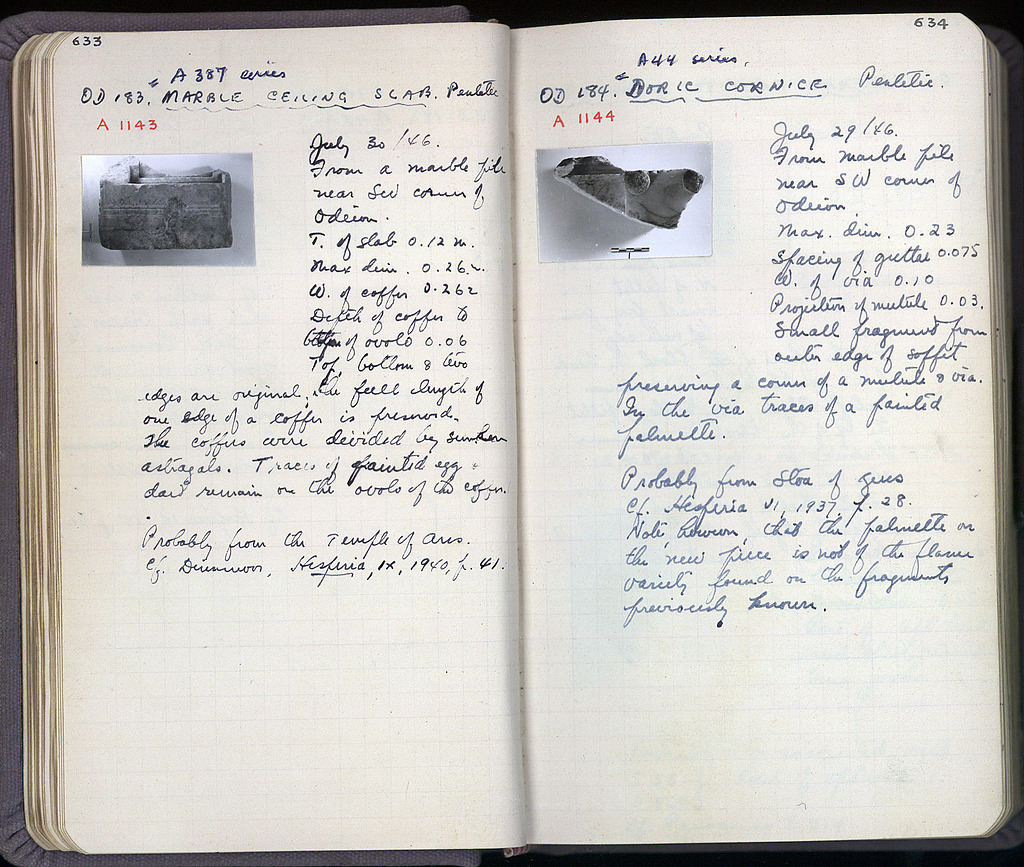 633
A 387 series
OD 183. MARBLE CEILING SLAB. Pentelic
A 1143
July 30/46.
From a marble pile
near SW corner of
Odeion.
T. of slab 0.12 m.
Max dim. 0.26
W. of coffer 0.262
Depth of coffer to
bottom of ovolo 0.06
Top, bottom & two
edges are original. The full length of
one edge of a coffer is preserved.
The coffers were divided by sunken
astragals. Traces of painted egg &
dart remain on the ovolo of the coffer.
Probably from the Temple of Ares.
Cf. Dinsmoor, Hesperia, IX, 1940, p. 41.
634
A44 series.
OD 184. DORIC CORNICE Pentelic.
A 1144
July 29/46.
From marble pile
near SW corner of
Odeion
Max. dim. 0.23
Spacing of guttae 0.075
W. of via 0.10
Projection of mutule 0.03.
Small fragment from
outer edge of soffit
preserving a corner of a mutule & via.
In the via traces of a painted
palmette.
Probably from Stoa of Zeus
Cf. Hesperia VI, 1937, p. 28.
Note, however, that the palmette on
the new piece is not of the flame
variety found on the fragments
previously known.